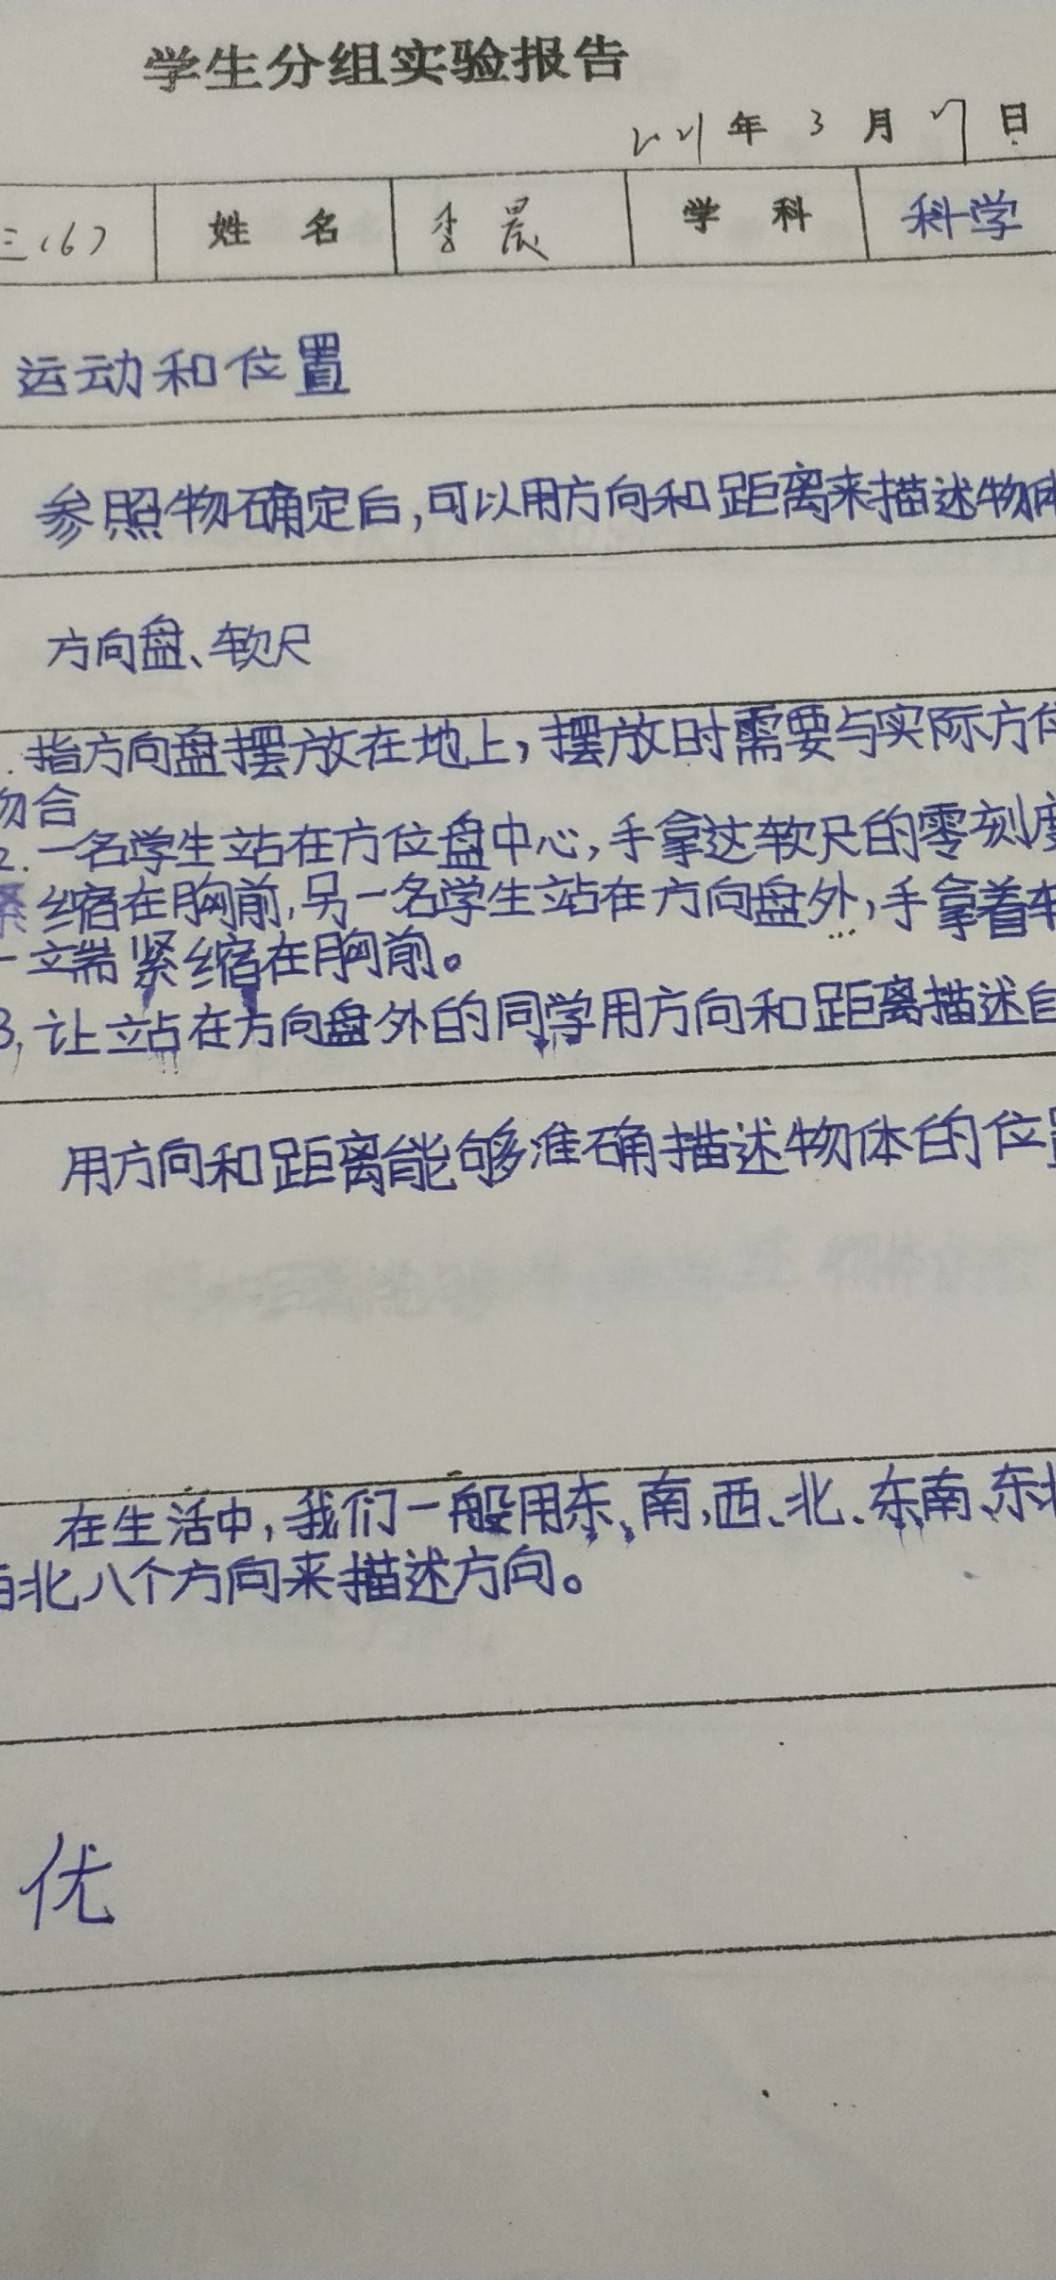 学生分组实验报告
2021年3月17日
三(6) 姓名 李晨 学科 科学
运动和位置
参照物确定后,可以用方向和距离来描述物体
方向盘、软尺
.指方向盘摆放在地上,摆放时需要与实际方位
吻合
2.一名学生站在方位盘中心,手拿这软尺的零刻度
紧缩在胸前,另一名学生站在方向盘外,手拿着软
一端紧缩在胸前。
3,让站在方向盘外的同学用方向和距离描述自
用方向和距离能够准确描述物体的位置
在生活中,我们一般用东、南,西、北、东南、东北
西北八个方向来描述方向。
优